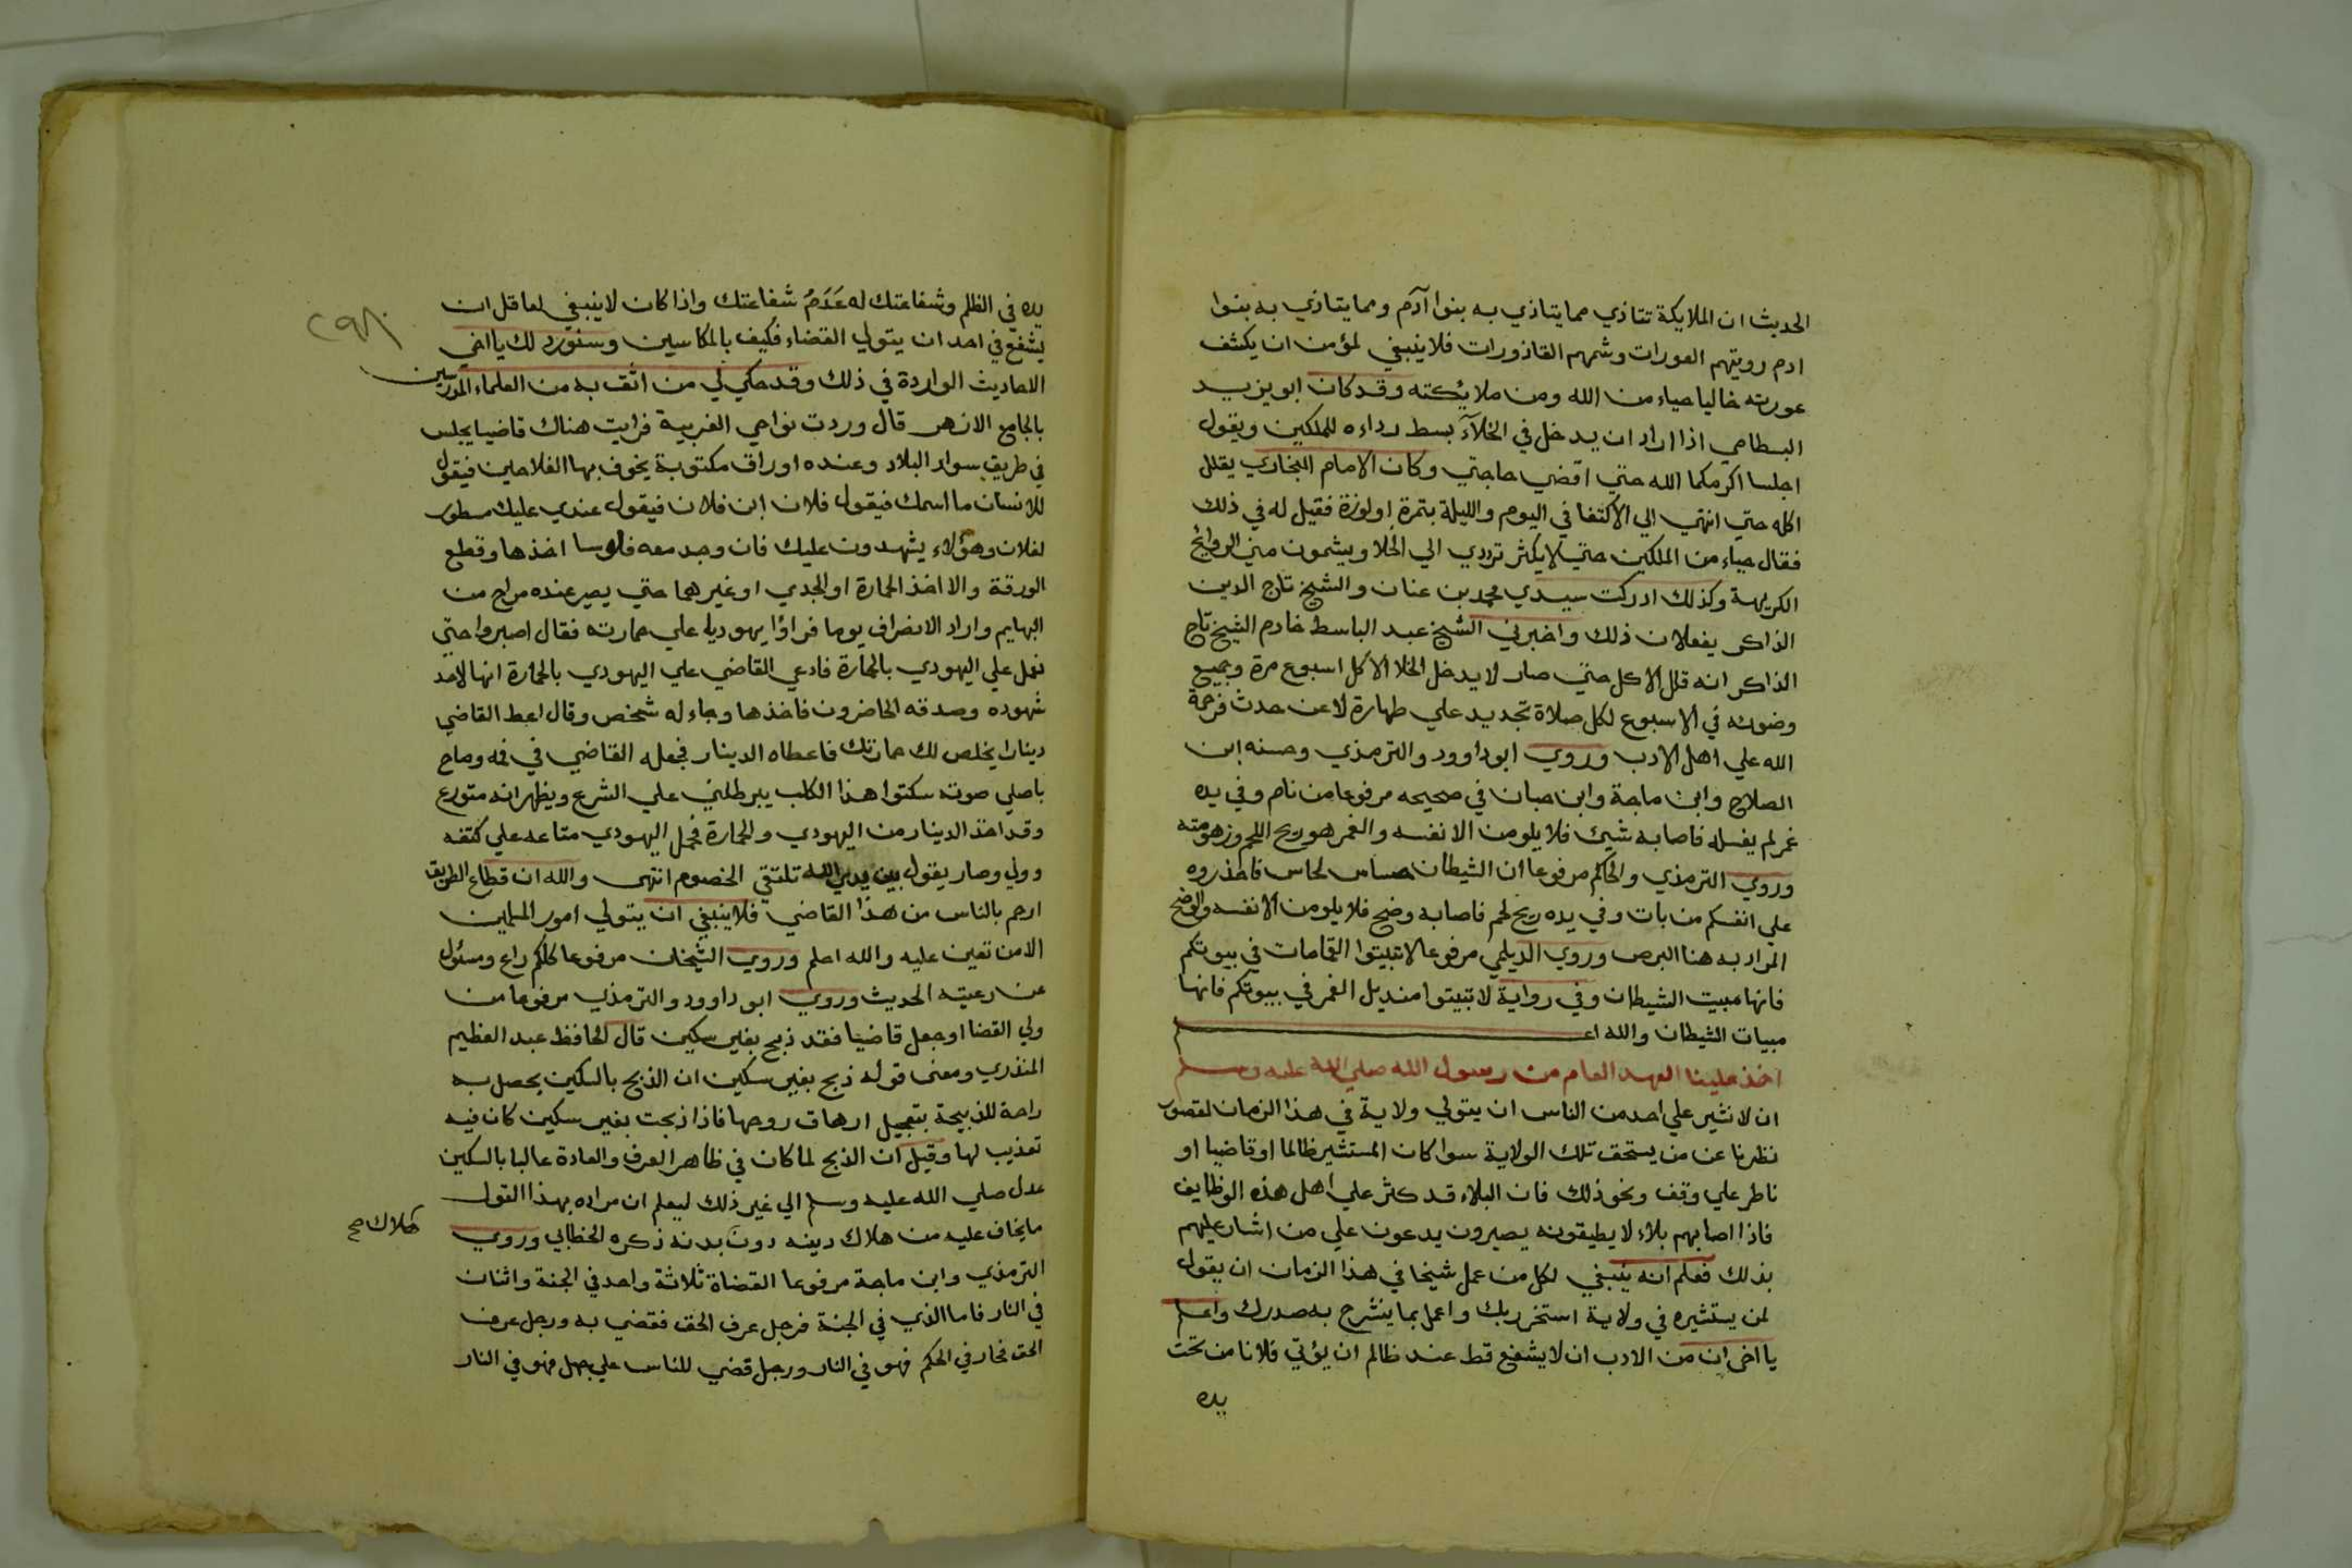 الحديث ان الملايكة تتاذي مما يتاذي به بنوا آدم ومما يتاذي به بنوا
ادم رويتهم العورات وشمهم القاذورات فلا ينبغي لمؤمن ان يكشف
عورته خاليا حياء من الله ومن ملائكته وقد كان ابو يزيد
البسطامي اذا اراد ان يدخل في الخلآء بسط رداءه للملكين ويقول
اجلسا اكرمكما الله حتي اقضي حاجتي وكان الامام البخاري يقلل
اكله حتي انتهي الي الاكتفا في اليوم والليلة بتمرة او لوزة فقيل له في ذلك
فقال حياء من الملكين حتي لا يكثر ترددي الي الخلا ويشمون مني الروائح
الكريهة وكذلك ادركت سيدي محمد بن عنان والشيخ تاج الدين
الذاكر يفعلان ذلك واخبرني الشيخ عبد الباسط خادم الشيخ تاج
الذاكر انه قلل الاكل حتي صار لا يدخل الخلا الا كل اسبوع مرة وجميع
وضوئه في الاسبوع لكل صلاة تجديد علي طهارة لا عن حدث فرحمة
الله علي اهل الادب وروي ابو داوود والترمذي وحسنه ابن
الصلاح وابن ماجة وابن حبان في صحيحه مرفوعا من نام وفي يده
غمر لم يغسله فاصابه شيئ فلا يلومن الا نفسه والغمر هو ريح اللحم وزهومته
وروي الترمذي والحاكم مرفوعا ان الشيطان حساس لحاس فاحذروه
علي انفسكم من بات وفي يده ريح لحم فاصابه وضح فلا يلومن الا نفسه والوضح
المراد به هنا البرص وروي الديلمي مرفوعا لا تبيتوا القمامات في بيوتكم
فانها مبيت الشيطان وفي رواية لا تبيتوا منديل الغمر في بيوتكم فانها
مبيات الشيطان والله اعلم
اخذ علينا العهد العام من رسول الله صلي الله عليه وسلم
ان لا نشير علي احد من الناس ان يتولي ولاية في هذا الزمان لقصور
نظرنا عن من يستحق تلك الولاية سوا كان المستشير ظالما او قاضيا او
ناظر علي وقف ونحو ذلك فان البلاء قد كثر علي اهل هذه الوظايف
فاذا اصابهم بلاء لا يطيقونه يصيرون يدعون علي من اشار عليهم
بذلك فعلم انه ينبغي لكل من عمل شيخا في هذا الزمان ان يقول
لمن يستشيره في ولاية استخر ربك واعمل بما ينشرح به صدرك واعلم
يا اخي ان من الادب ان لا يشفع قط عند ظالم ان يؤتي فلانا من تحت
يده
يده في الظلم وشفاعتك له عَدَمُ شفاعتك واذا كان لا ينبغي لعاقل ان
يشفع في احد ان يتولي القضاء فكيف بالمكاسين وسنورد لك يا اخي
الاحاديث الواردة في ذلك وقد حكي لي من اثق به من العلماء المدرسين
بالجامع الازهر قال وردت نواحي الغربية فرايت هناك قاضيا يجلس
في طريق سواد البلاد وعنده اوراق مكتوبة يخوف بها الفلاحين فيقول
للانسان ما اسمك فيقول فلان ابن فلان فيقول عندي عليك مسطور
لفلان وهؤلاء يشهدون عليك فان وجد معه فلوسا اخذها وقطع
الورقة والا اخذ الحمارة او الجدي او غيرهما حتي يصير عنده مراح من
البهايم واراد الانصراف يوما فراوا يهوديا علي حمارته فقال اصبروا حتي
نعمل علي اليهودي بالحمارة فادعي القاضي علي اليهودي بالحمارة انها لاحد
شهوده وصدقه الحاضرون فاخذها وجاء له شخص وقال اعط القاضي
دينارا يخلص لك حمارتك فاعطاه الدينار فجعله القاضي في فمه وصاح
باعلي صوته سكتوا هذا الكلب يبرطلني علي الشرع ويظهر انه متورع
وقد اخذ الدينار من اليهودي والحمارة فحمل اليهودي متاعه علي كتفه
وولي وصار يقول بين يدي الله تلتقي الخصوم انتهى والله ان قطاع الطريق
ارحم بالناس من هذا القاضي فلا ينبغي ان يتولي امور المسلمين
الا من تعين عليه والله اعلم وروي الشيخان مرفوعا كلكم راع ومسئول
عن رعيته الحديث وروي ابو داوود والترمذي مرفوعا من
ولي القضا او جعل قاضيا فقد ذبح بغير سكين قال الحافظ عبد العظيم
المنذري ومعنى قوله ذبح بغير سكين ان الذبح بالسكين يحصل به
راحة للذبيحة بتعجيل ازهاق روحها فاذا ذبحت بغير سكين كان فيه
تعذيب لها وقيل ان الذبح لما كان في ظاهر العرف والعادة غالبا بالسكين
عدل صلي الله عليه وسلم الي غير ذلك ليعلم ان مراده بهذا القول
ما يخاف عليه من هلاك دينه دون بدنه ذكره الخطابي وروي
هلاك صح
الترمذي وابن ماجة مرفوعا القضاة ثلاثة واحد في الجنة واثنان
في النار فاما الذي في الجنة فرجل عرف الحق فقضي به ورجل عرف
الحق فجار في الحكم فهو في النار ورجل قضي للناس علي جهل فهو في النار